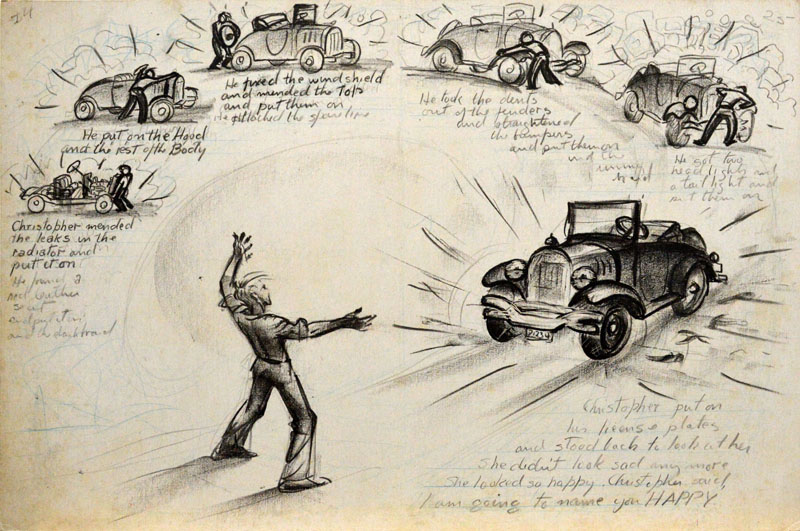 24
25
Christopher mended
the leaks in the
radiator and
put it on
He found a
seat
and put it in
and a dashboard
He put on the Hood
and the rest of the Body
He fixed the windshield
and mended the Tops
and put them on
He attached the
He took the dents
out of the fenders
and straightened
the bumpers
and put them on
and the
He got two
head lights and
a tail light and
put them on
Christopher put on
his license plates
and stood back to look at her
She didn't look sad any more
She looked so happy. Christopher said,
I am going to name you HAPPY.